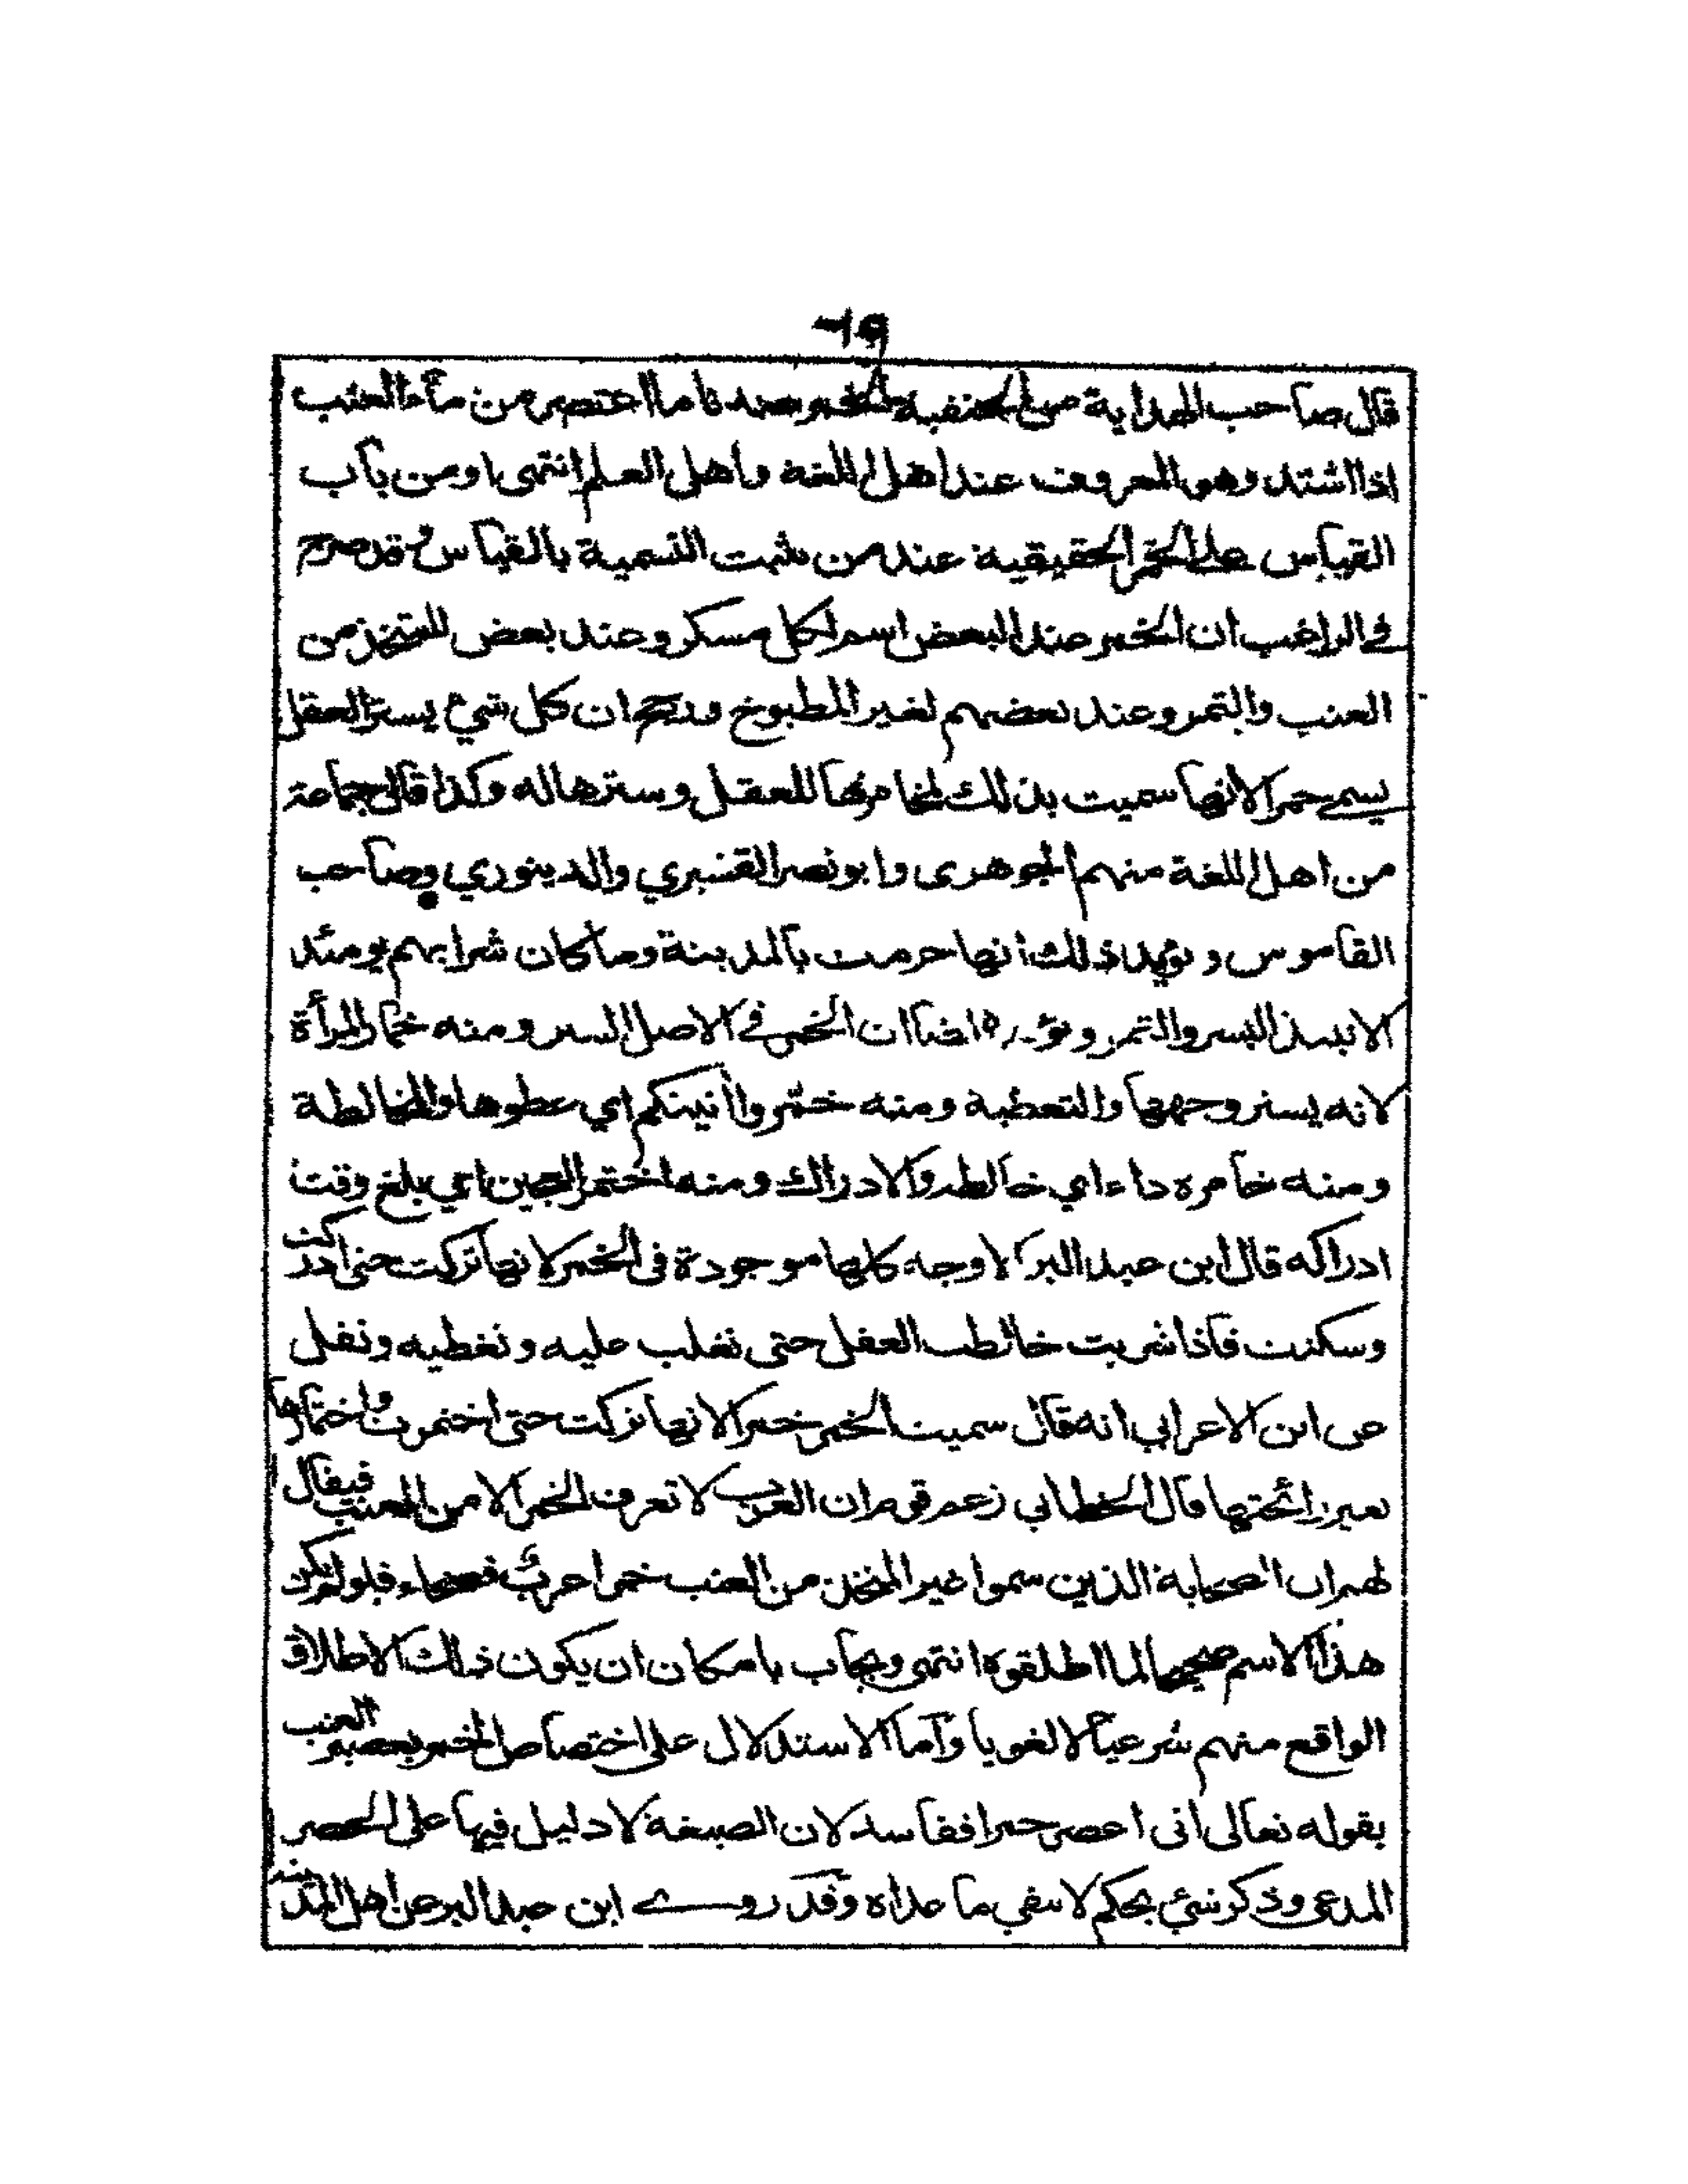 ٦٩
قال صاحب الهداية من الحنفية الخمر عندنا ما اعتصر من ماء العنب
اذا اشتد وهو المعروف عند اهل اللغة واهل العلم انتهى او من باب
القياس على الخمر الحقيقية عند من يثبت التسمية بالقياس وقد صرح
في الراغب ان الخمر عند البعض اسم لكل مسكر وعند بعض للمتخذ من
العنب والتمر وعند بعضهم لغير المطبوخ ورجح ان كل شيء يستر العقل
يسمى خمرا لانها سميت بذلك لمخامرتها للعقل وسترها له وكذا قال جماعة
من اهل اللغة منهم الجوهرى وابو نصر القشيري والدينوري وصاحب
القاموس ويؤيد ذلك انها حرمت بالمدينة وما كان شرابهم يومئذ
الا نبيذ البسر والتمر ويؤيده ايضا ان الخمر في الاصل الستر ومنه خمار المرأة
لانه يستر وجهها والتغطية ومنه خمّروا آنيتكم اي غطوها والمخالطة
ومنه خامره داء اي خالطه والادراك ومنه اختمر العجين اي بلغ وقت
ادراكه قال ابن عبد البر الاوجه كلها موجودة فى الخمر لانها تركت حتى ادركت
وسكنت فاذا شربت خالطت العقل حتى تغلب عليه وتغطيه ونقل
عن ابن الاعرابي انه قال سميت الخمر خمرا لانها تركت حتى اختمرت واختمارها
تغير رائحتها قال الخطابي زعم قوم ان العرب لا تعرف الخمر الا من العنب فيقال
لهم ان الصحابة الذين سموا غير المتخذ من العنب خمرا عرب فصحاء فلو لم يكن
هذا الاسم صحيحا لما اطلقوه انتهى ويجاب بامكان ان يكون ذلك الاطلاق
الواقع منهم شرعيا لا لغويا وأما الاستدلال على اختصاص الخمر بعصير العنب
بقوله تعالى انى اعصر خمرا ففاسد لان الصيغة لا دليل فيها على الحصر
المدعى وذكر شئ بحكم لا ينفي ما عداه وقد روى ابن عبد البر عن اهل المدينة